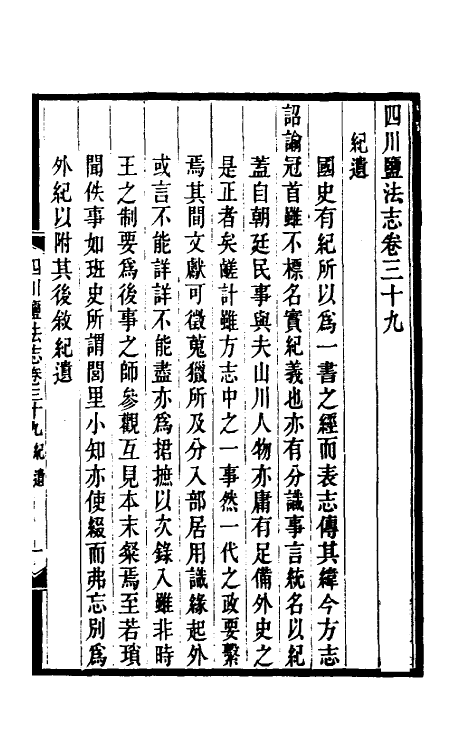 四川鹽法志卷三十九
紀遺
國史有紀所以爲一書之經而表志傳其緯今方志
詔諭冠首雖不標名實紀義也亦有分識事言統名以紀
蓋自朝廷民事與夫山川人物亦庸有足備外史之
是正者矣鹺計雖方志中之一事然一代之政要繫
焉其間文獻可徵蒐獵所及分入部居用識緣起外
或言不能詳詳不能盡亦爲捃摭以次錄入雖非時
王之制要爲後事之師參觀互見本末粲焉至若瑣
聞佚事如班史所謂閭里小知亦使綴而弗忘別爲
外紀以附其後敘紀遺
四川鹽法志卷三十九 紀遺 一